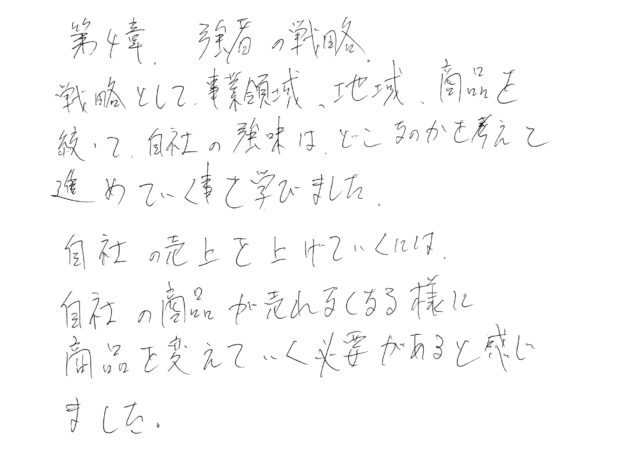 第4章. 強者の戦略.
戦略として、事業領域、地域、商品を
絞って、自社の強味は、どこなのかを考えて
進めていく事を学びました.
自社の売上を上げていくには、
自社の商品が売れなくなる様に
商品を変えていく必要があると感じ
ました。